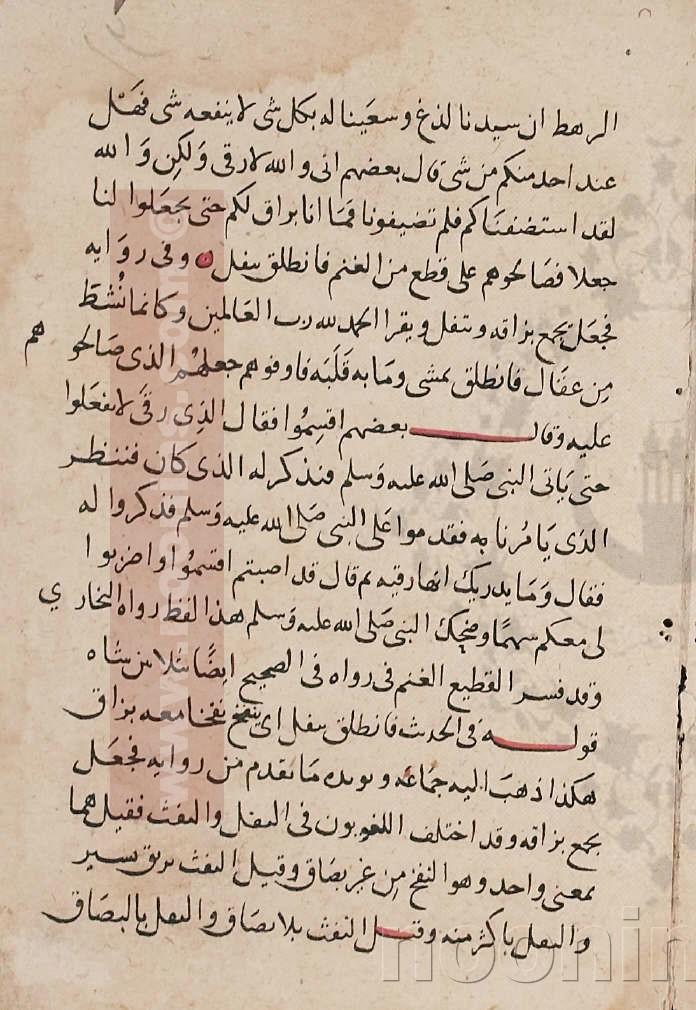 الرهط ان سيدنا لدغ وسعينا له بكل شى لا ينفعه شى فهل
عند احد منكم من شئ قال بعضهم انى والله لا رقى ولكن والله
لقد استضفناكم فلم تضيفونا فما انا براق لكم حتى تجعلوا لنا
جعلا فصالحوهم على قطع من الغنم فانطلق يتفل وفى روايه
فجعل يجمع بزاقه ويتفل ويقرا الحمد لله رب العالمين وكانما نشط
من عقال فانطلق يمشى وما به قلبه فاوفوهم جعلهم الذى صالحوهم
عليه وقال بعضهم اقسموا فقال الذى رقى لا تفعلوا
حتى ياتى النبى صلى الله عليه وسلم فنذكر له الذى كان فننظر
الذى يامرنا به فقدموا على النبى صلى الله عليه وسلم فذكروا له
فقال وما يدريك انها رقيه ثم قال قد اصبتم اقسموا واضربوا
لى معكم سهما وضحك النبى صلى الله عليه وسلم هذا لفظ رواه البخارى
وقد فسر القطيع الغنم فى رواه فى الصحيح ايضًا بثلاثين شاه
قوله فى الحديث فانطلق يتفل اى ينفخ نفخا معه بزاق
هكذا ذهب اليه جماعه ويويده ما تقدم من روايه فجعل
يجمع بزاقه وقد اختلف اللغويون فى التفل والنفث فقيل هما
بمعنى واحد وهو النفخ من غير بصاق وقيل النفث بريق يسير
والتفل باكثر منه وقيل النفث بلا بصاق والتفل بالبصاق
noonin